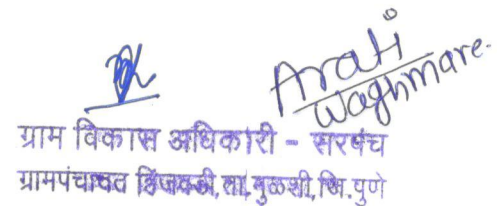 Arati
Waghmare.
ग्राम विकास अधिकारी - सरपंच
ग्रामपंचायत हिंजवडी, ता. मुळशी, जि. पुणे